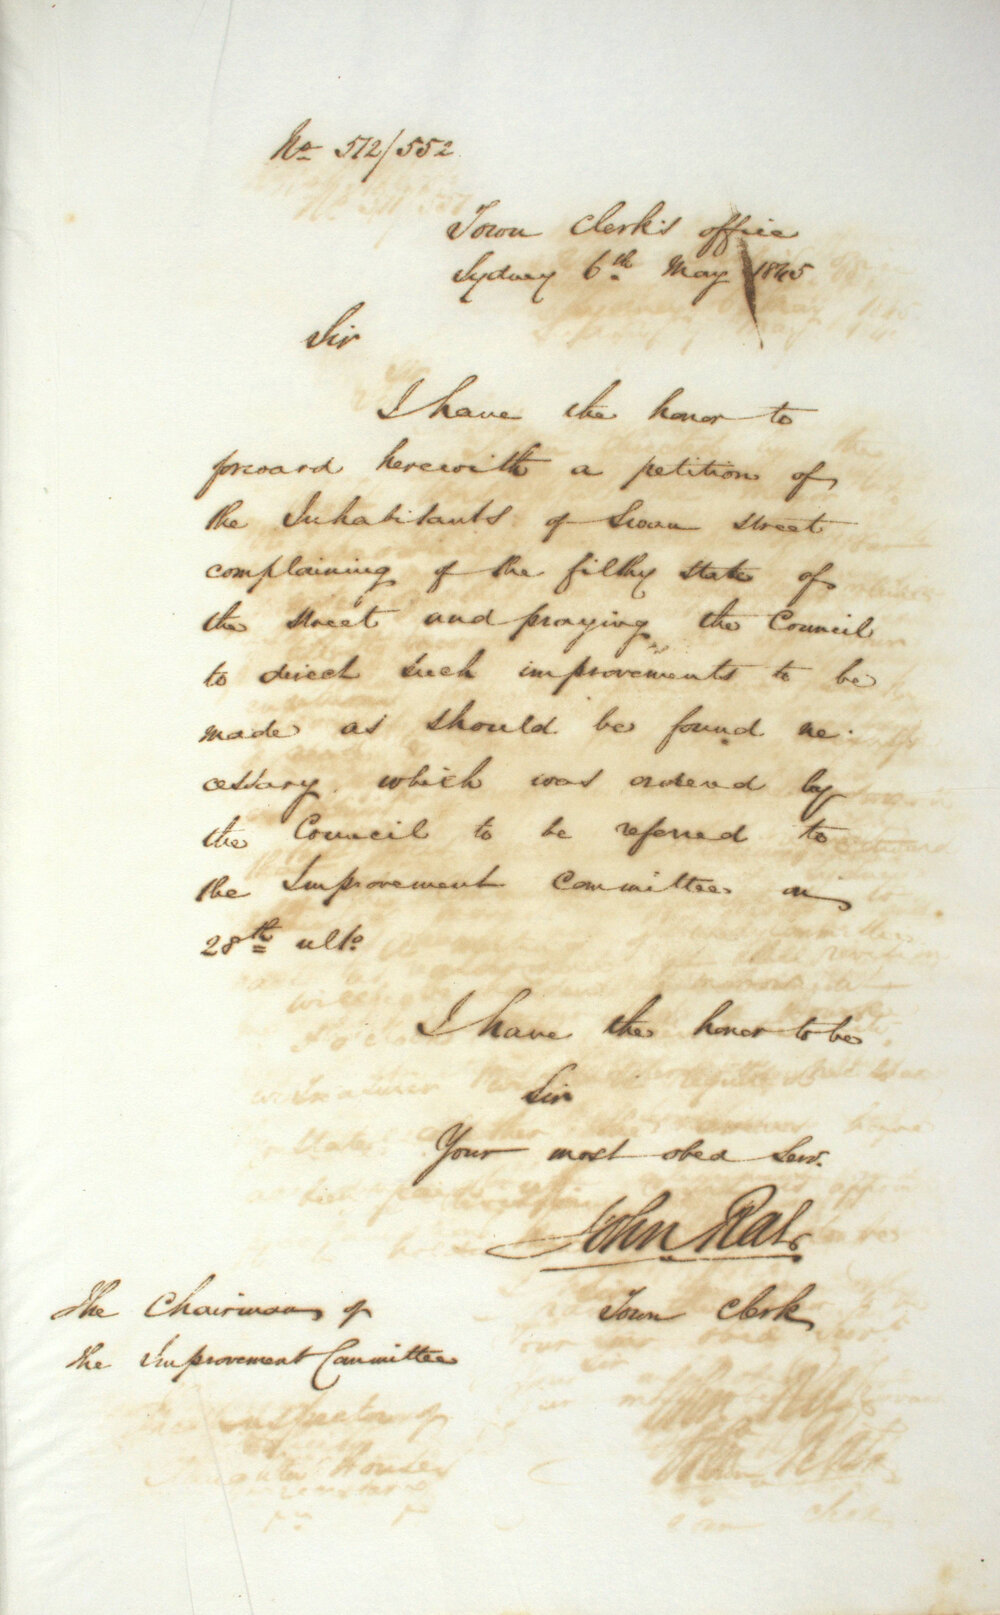 No 512/552
Town Clerk's office
Sydney 6th May 1845
Sir
I have the honor to
forward herewith a petition of
the Inhabitants of Swan Street
complaining of the filthy state of
the street and praying the Council
to direct such improvements to be
made as should be found ne-
cessary which was ordered by
the Council to be referred to
the Improvement Committee on
28th ulto
I have the honor to be
Sir
Your most obed Serv.
John Rae
Town Clerk
The Chairman of
the Improvement Committee